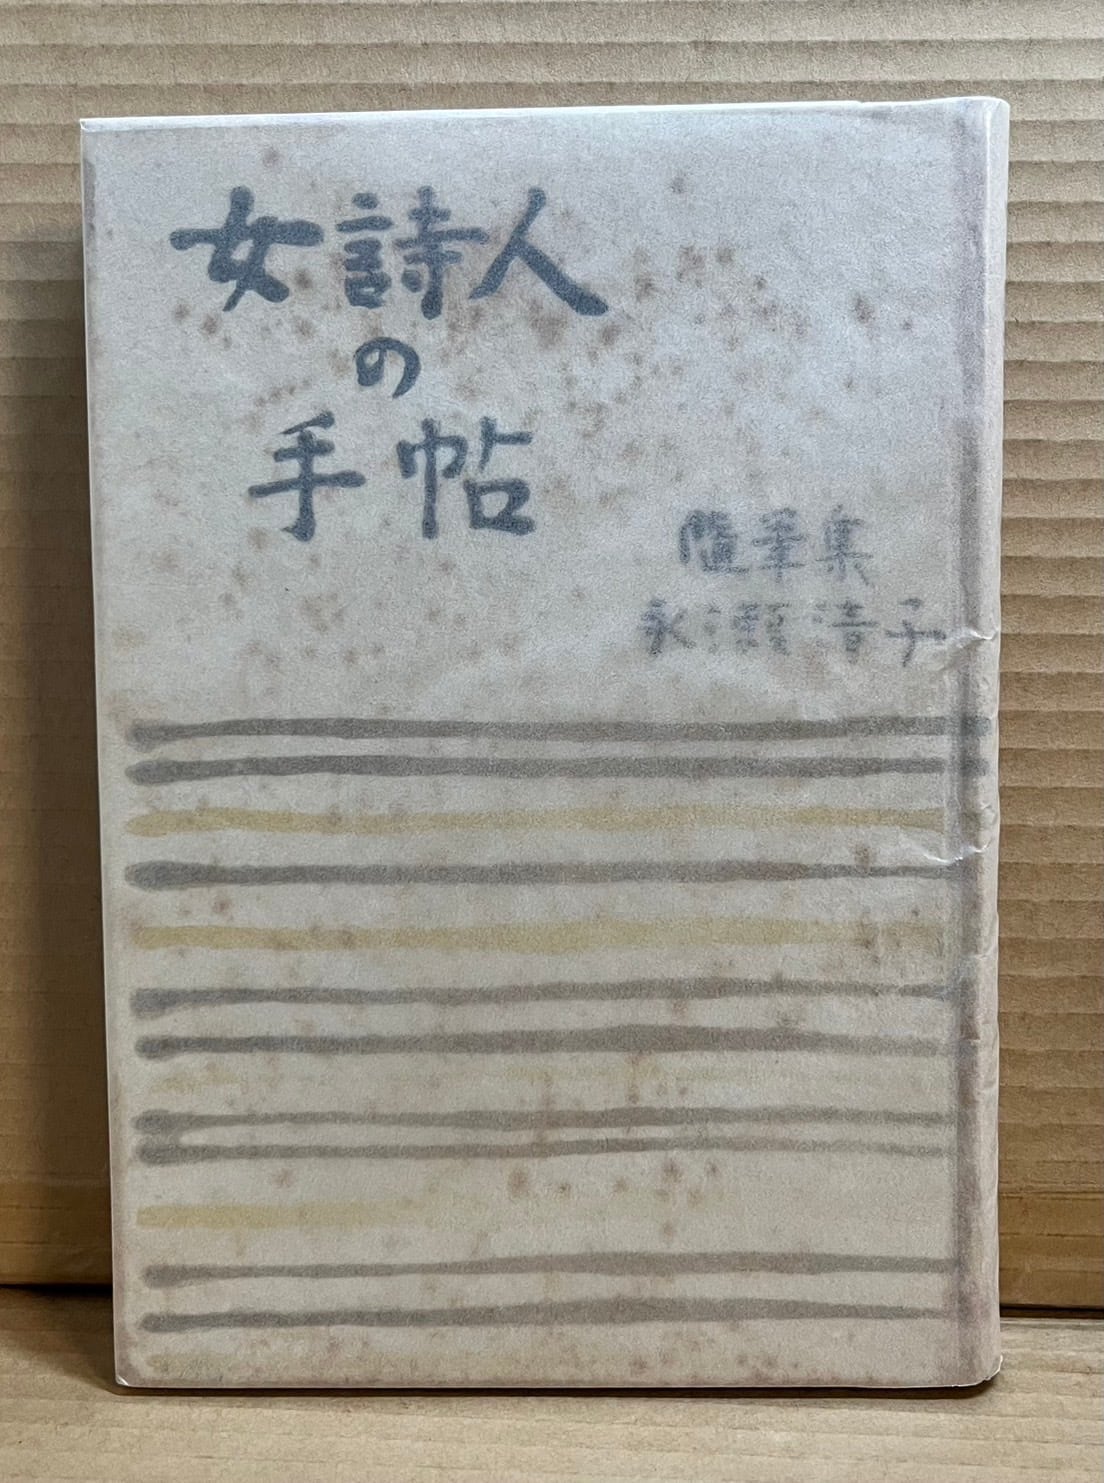 女詩人
の
手帖
随筆集
永瀬清子